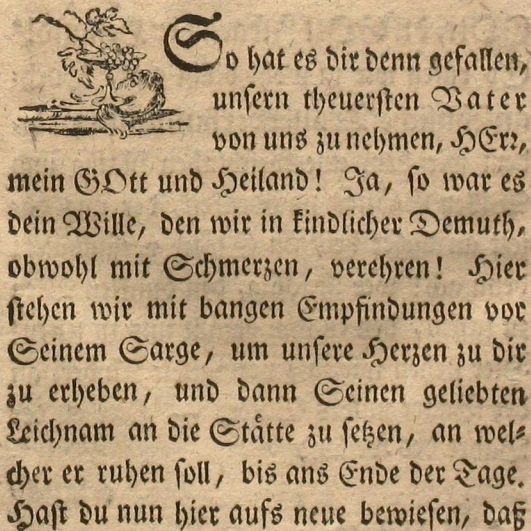 So hat es dir denn gefallen,
unsern theuersten Vater
von uns zu nehmen, HErr,
mein GOtt und Heiland! Ja, so war es
dein Wille, den wir in kindlicher Demuth,
obwohl mit Schmerzen, verehren! Hier
stehen wir mit bangen Empfindungen vor
Seinem Sarge, um unsere Herzen zu dir
zu erheben, und dann Seinen geliebten
Leichnam an die Stätte zu setzen, an wel-
cher er ruhen soll, bis ans Ende der Tage.
Hast du nun hier aufs neue bewiesen, daß